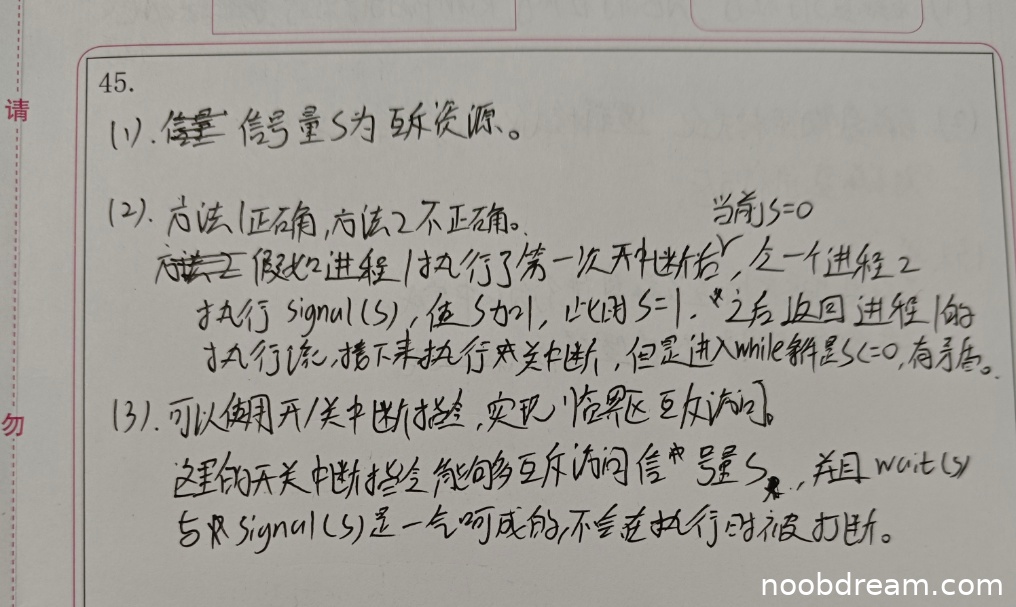 45.
(1). 信号量S为互斥资源。
(2). 方法1正确,方法2不正确。
当前S=0
假如进程1执行了第一次开中断后,令一个进程2
执行signal(S),使S加1,此时S=1.之后返回进程1的
执行流,接下来执行关中断,但是进入while条件是S<=0,有矛盾。
(3).可以使用开/关中断指令,实现临界区互斥访问。
这里的开关中断指令能够互斥访问信号量S,并且wait(s)
与signal(S)是一气呵成的,不会在执行时被打断。
请
勿
noobdream.com